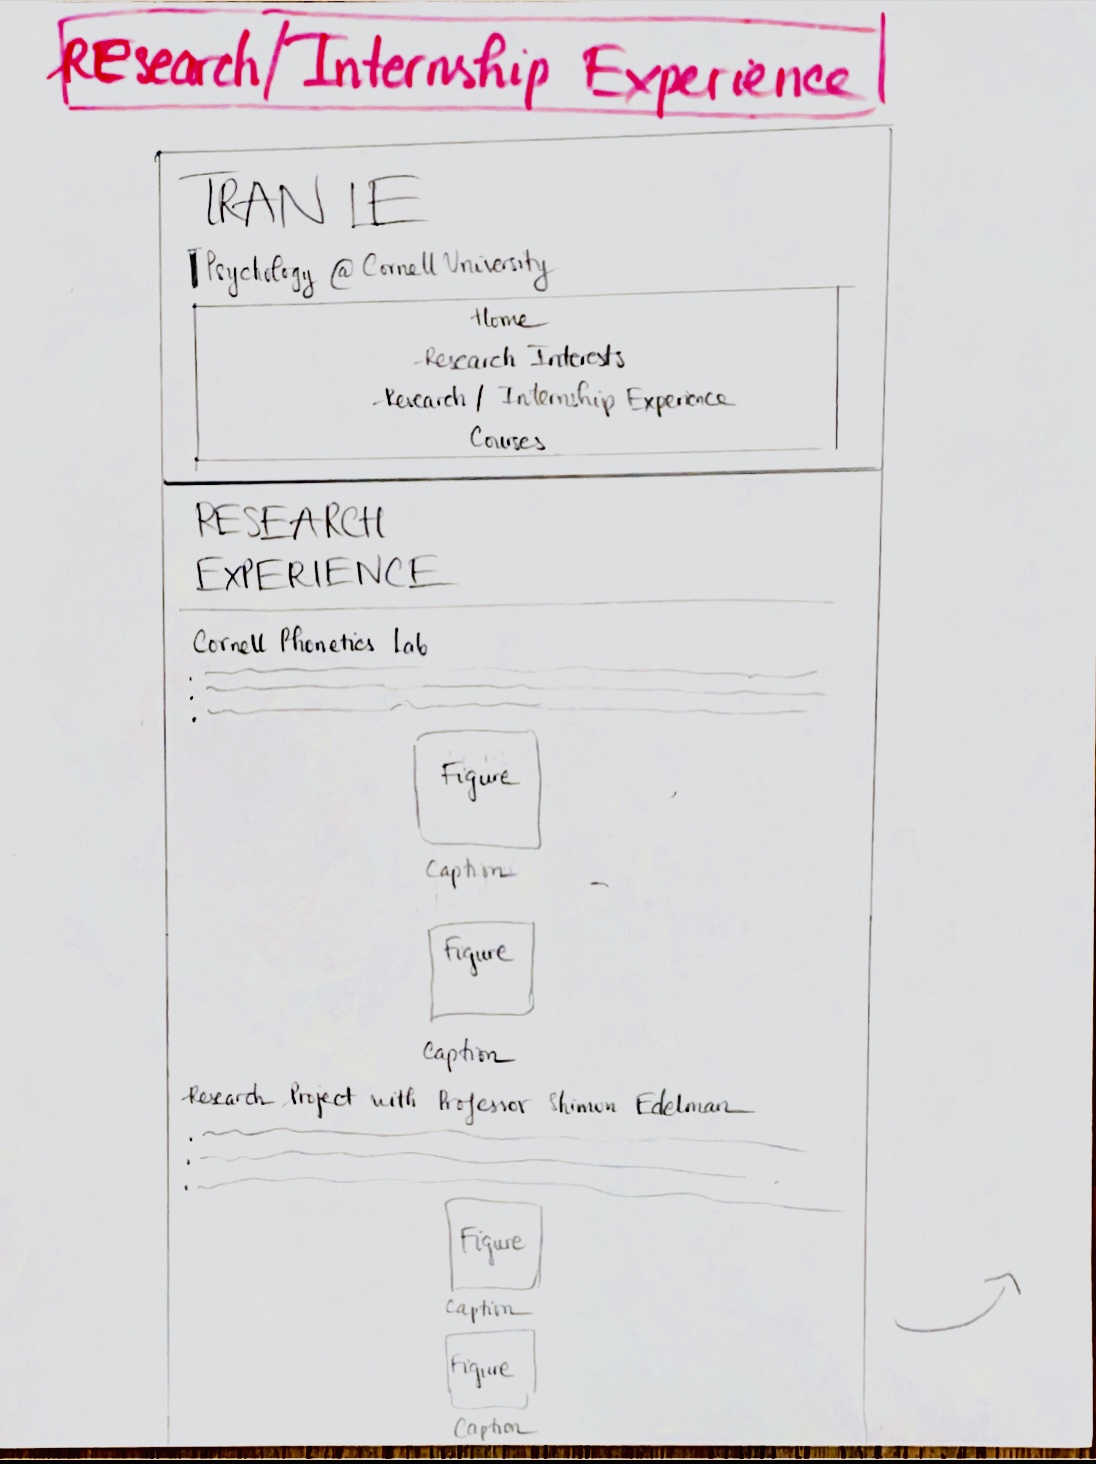 REsearch/Internship Experience
TRAN LE
Psychology @ Cornell University
Home
Research Interests
Research / Internship Experience
Courses
RESEARCH
EXPERIENCE
Cornell Phonetics Lab
Figure
Caption
Figure
Caption
Research Project with Professor Shimon Edelman
Figure
Caption
Figure
Caption